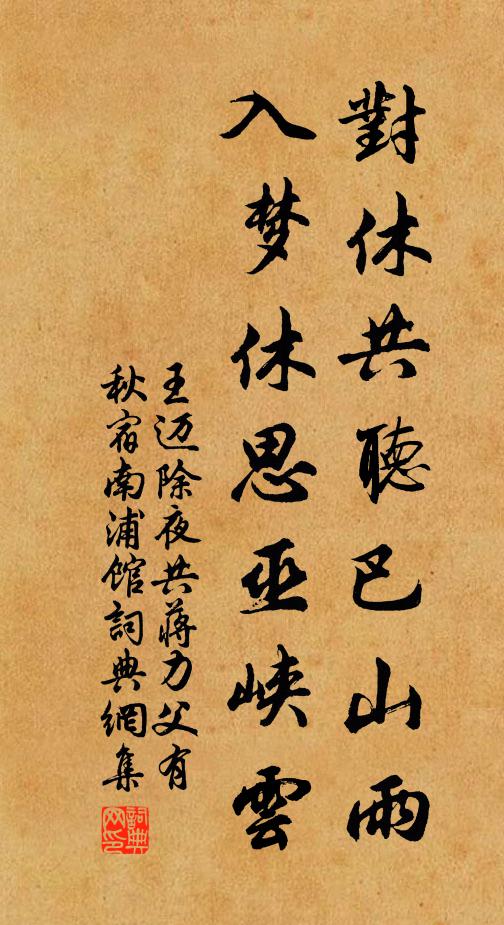 對休共聽巴山雨
入梦休思巫峡雲
王迈除夜共蒋力父有
秋宿南浦館詞典網集
詞典网印